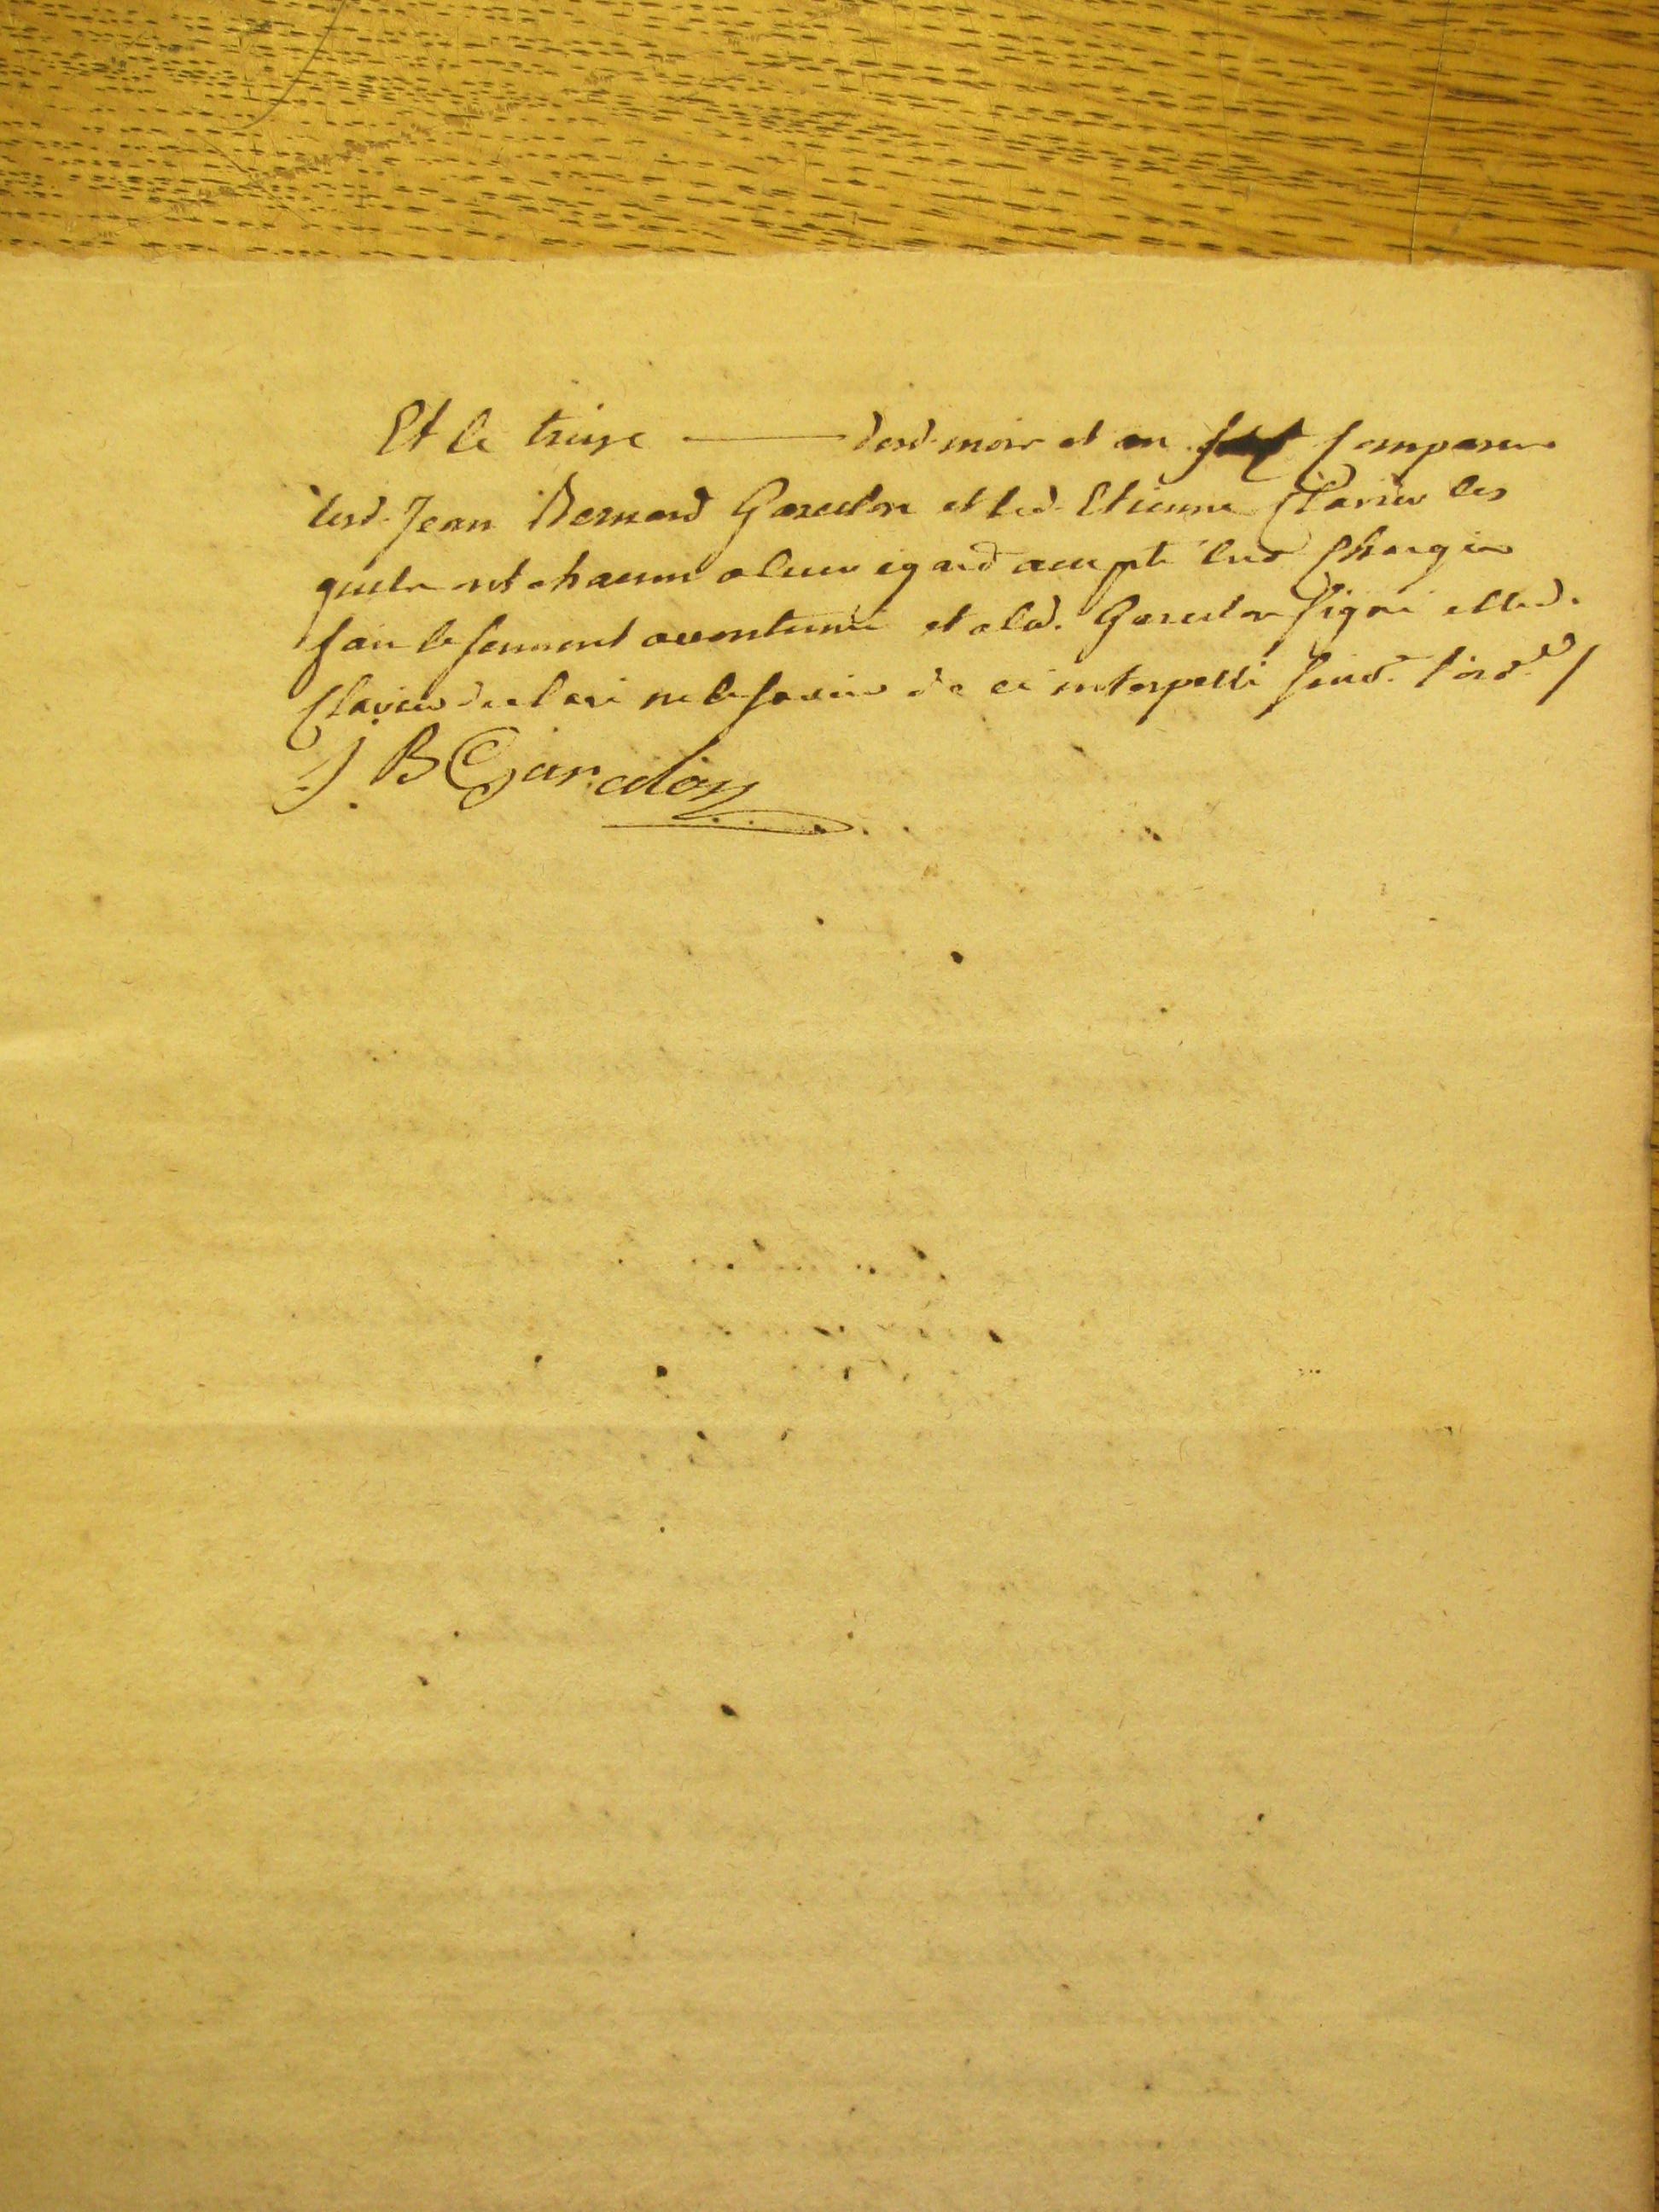 Et le treize ——— desd. mois et an comparurent
lesd. Jean Bernard Garcelon et led. Etienne Clavier les
quels ont chacun a leur egard accepté lesd. charges
fait le serment accoutumé et a led. Garcelon signé et led.
Clavier declaré ne le savoir de ce interpellé suiv.t l'ord.ce /
J. B Garcelon